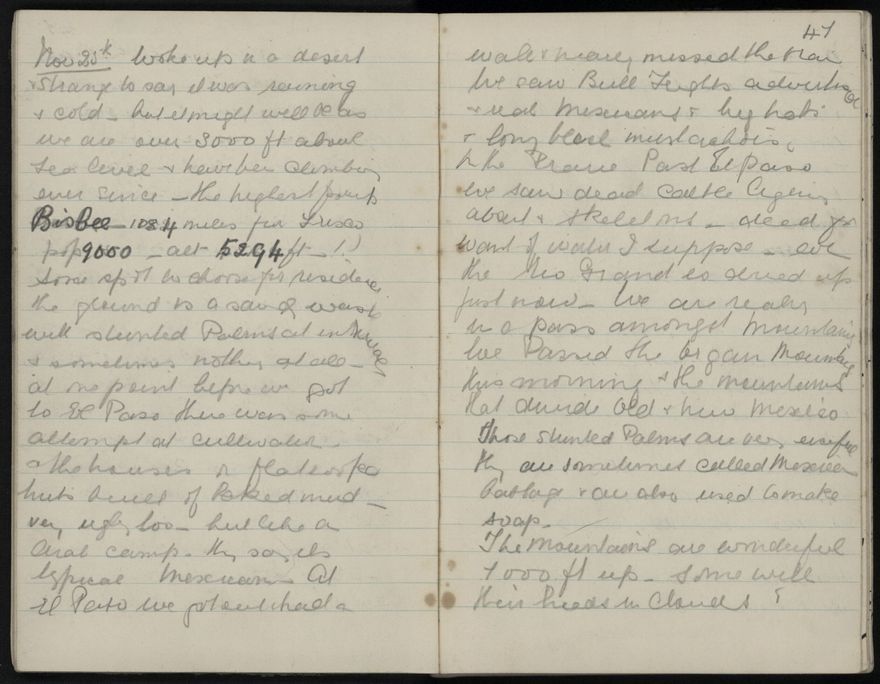 Nov 25th Woke up in a desert
& strange to say it was raining
& cold - but it might well be as
we are over 3000 ft about
sea level & have been climbing
ever since - the highest point
Bisbee - 1084 miles fm Frisco
pop 9000 - alt 5294 ft - !)
Some spot to choose for residence
the ground is a sandy waste
with stunted Palms at intervals
& sometimes nothing at all -
at one point before we got
to El Paso there was some
attempt at cultivation
& the houses or flat roofed
huts built of baked mud -
very ugly too - but like a
Arab camp. They say its
typical Mexican - At
El Paso we got out & had a
41
walk & nearly missed the train
We saw Bull Fights advertised
& real Mexicans & big hats
& long black mustachois.
In the Prarie Past El Paso
we saw dead cattle lying
about & skeletons - dead for
want of water I suppose - even
the Rio Grand is dried up
just now - We are really
in a pass amongst mountains
We Passed the Organ Mountains
this morning & the mountains
that divide Old & New Mexico
Those stunted Palms are very useful
they are sometimes called Mexican
Cabbage & are also used to make
soap -
The mountains are wonderful
7000 ft up - Some with
their heads in Clouds !